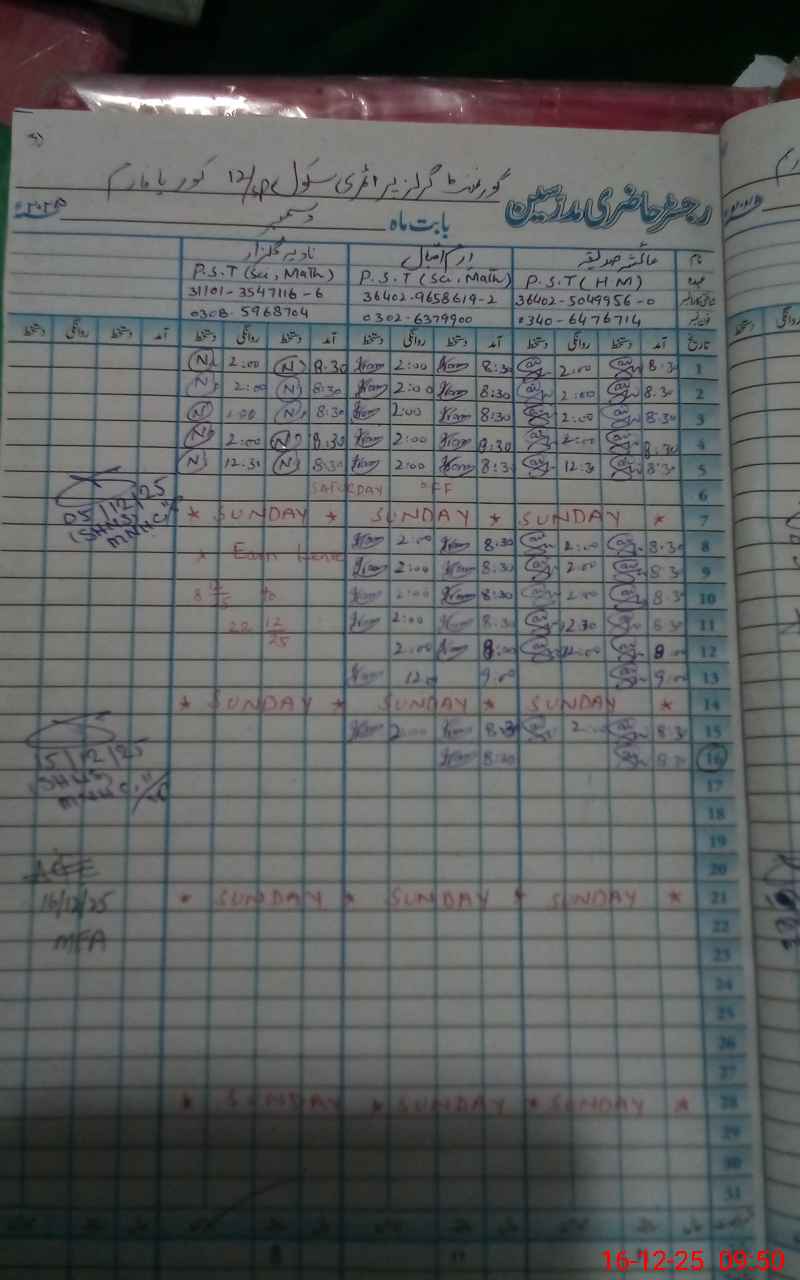 گورنمنٹ گرلز پرائمری سکول 12/
رجسٹر حاضری مدرسین
بابت ماہ دسمبر ۲۰۲۵ء
نام عائشہ صدیقہ ارم اقبال نادیہ گلزار
عہدہ P.S.T (H M) P.S.T (Sci, Math) P.S.T (Sci, Math)
36402-5049956-0 36402-9658619-2 31101-3547116-6
فون نمبر 0340-6476714 0302-6379900 0308-5968704
تاریخ آمد دستخط روانگی دستخط آمد دستخط روانگی دستخط آمد دستخط روانگی دستخط آمد دستخط روانگی دستخط
1 8:30 2:00 8:30 Iram 2:00 Iram 8:30 N 2:00 N
2 8:30 2:00 8:30 Iram 2:00 Iram 8:30 N 2:00 N
3 8:30 2:00 8:30 Iram 2:00 Iram 8:30 N 2:00 N
4 8:30 2:00 8:30 Iram 2:00 Iram 8:30 N 2:00 N
5 8:30 12:30 8:30 Iram 2:00 Iram 8:30 N 12:30 N
6 SATURDAY OFF
05/12/25
7 * SUNDAY * SUNDAY * SUNDAY *
8 8:30 2:00 8:30 Iram 2:00 Iram * Earn leave
9 8:30 2:00 8:30 Iram 2:00 Iram
10 8:30 2:00 8:30 Iram 2:00 Iram 8 12/25 to
11 8:30 12:30 8:30 Iram 2:00 Iram 22 12/25
12 8:00 12:00 8:00 Iram 2:00
13 9:00 9:00 12:00 Iram
14 * SUNDAY * SUNDAY * SUNDAY *
15 8:30 2:00 8:30 Iram 2:00 Iram
15/12/25
16 8:30 8:30 Iram
17
18
19
20
AEE
21 * SUNDAY * SUNDAY * SUNDAY *
16/12/25
22
MEA
23
24
25
26
27
28 * SUNDAY * SUNDAY * SUNDAY *
29
30
31
16-12-25 09:50